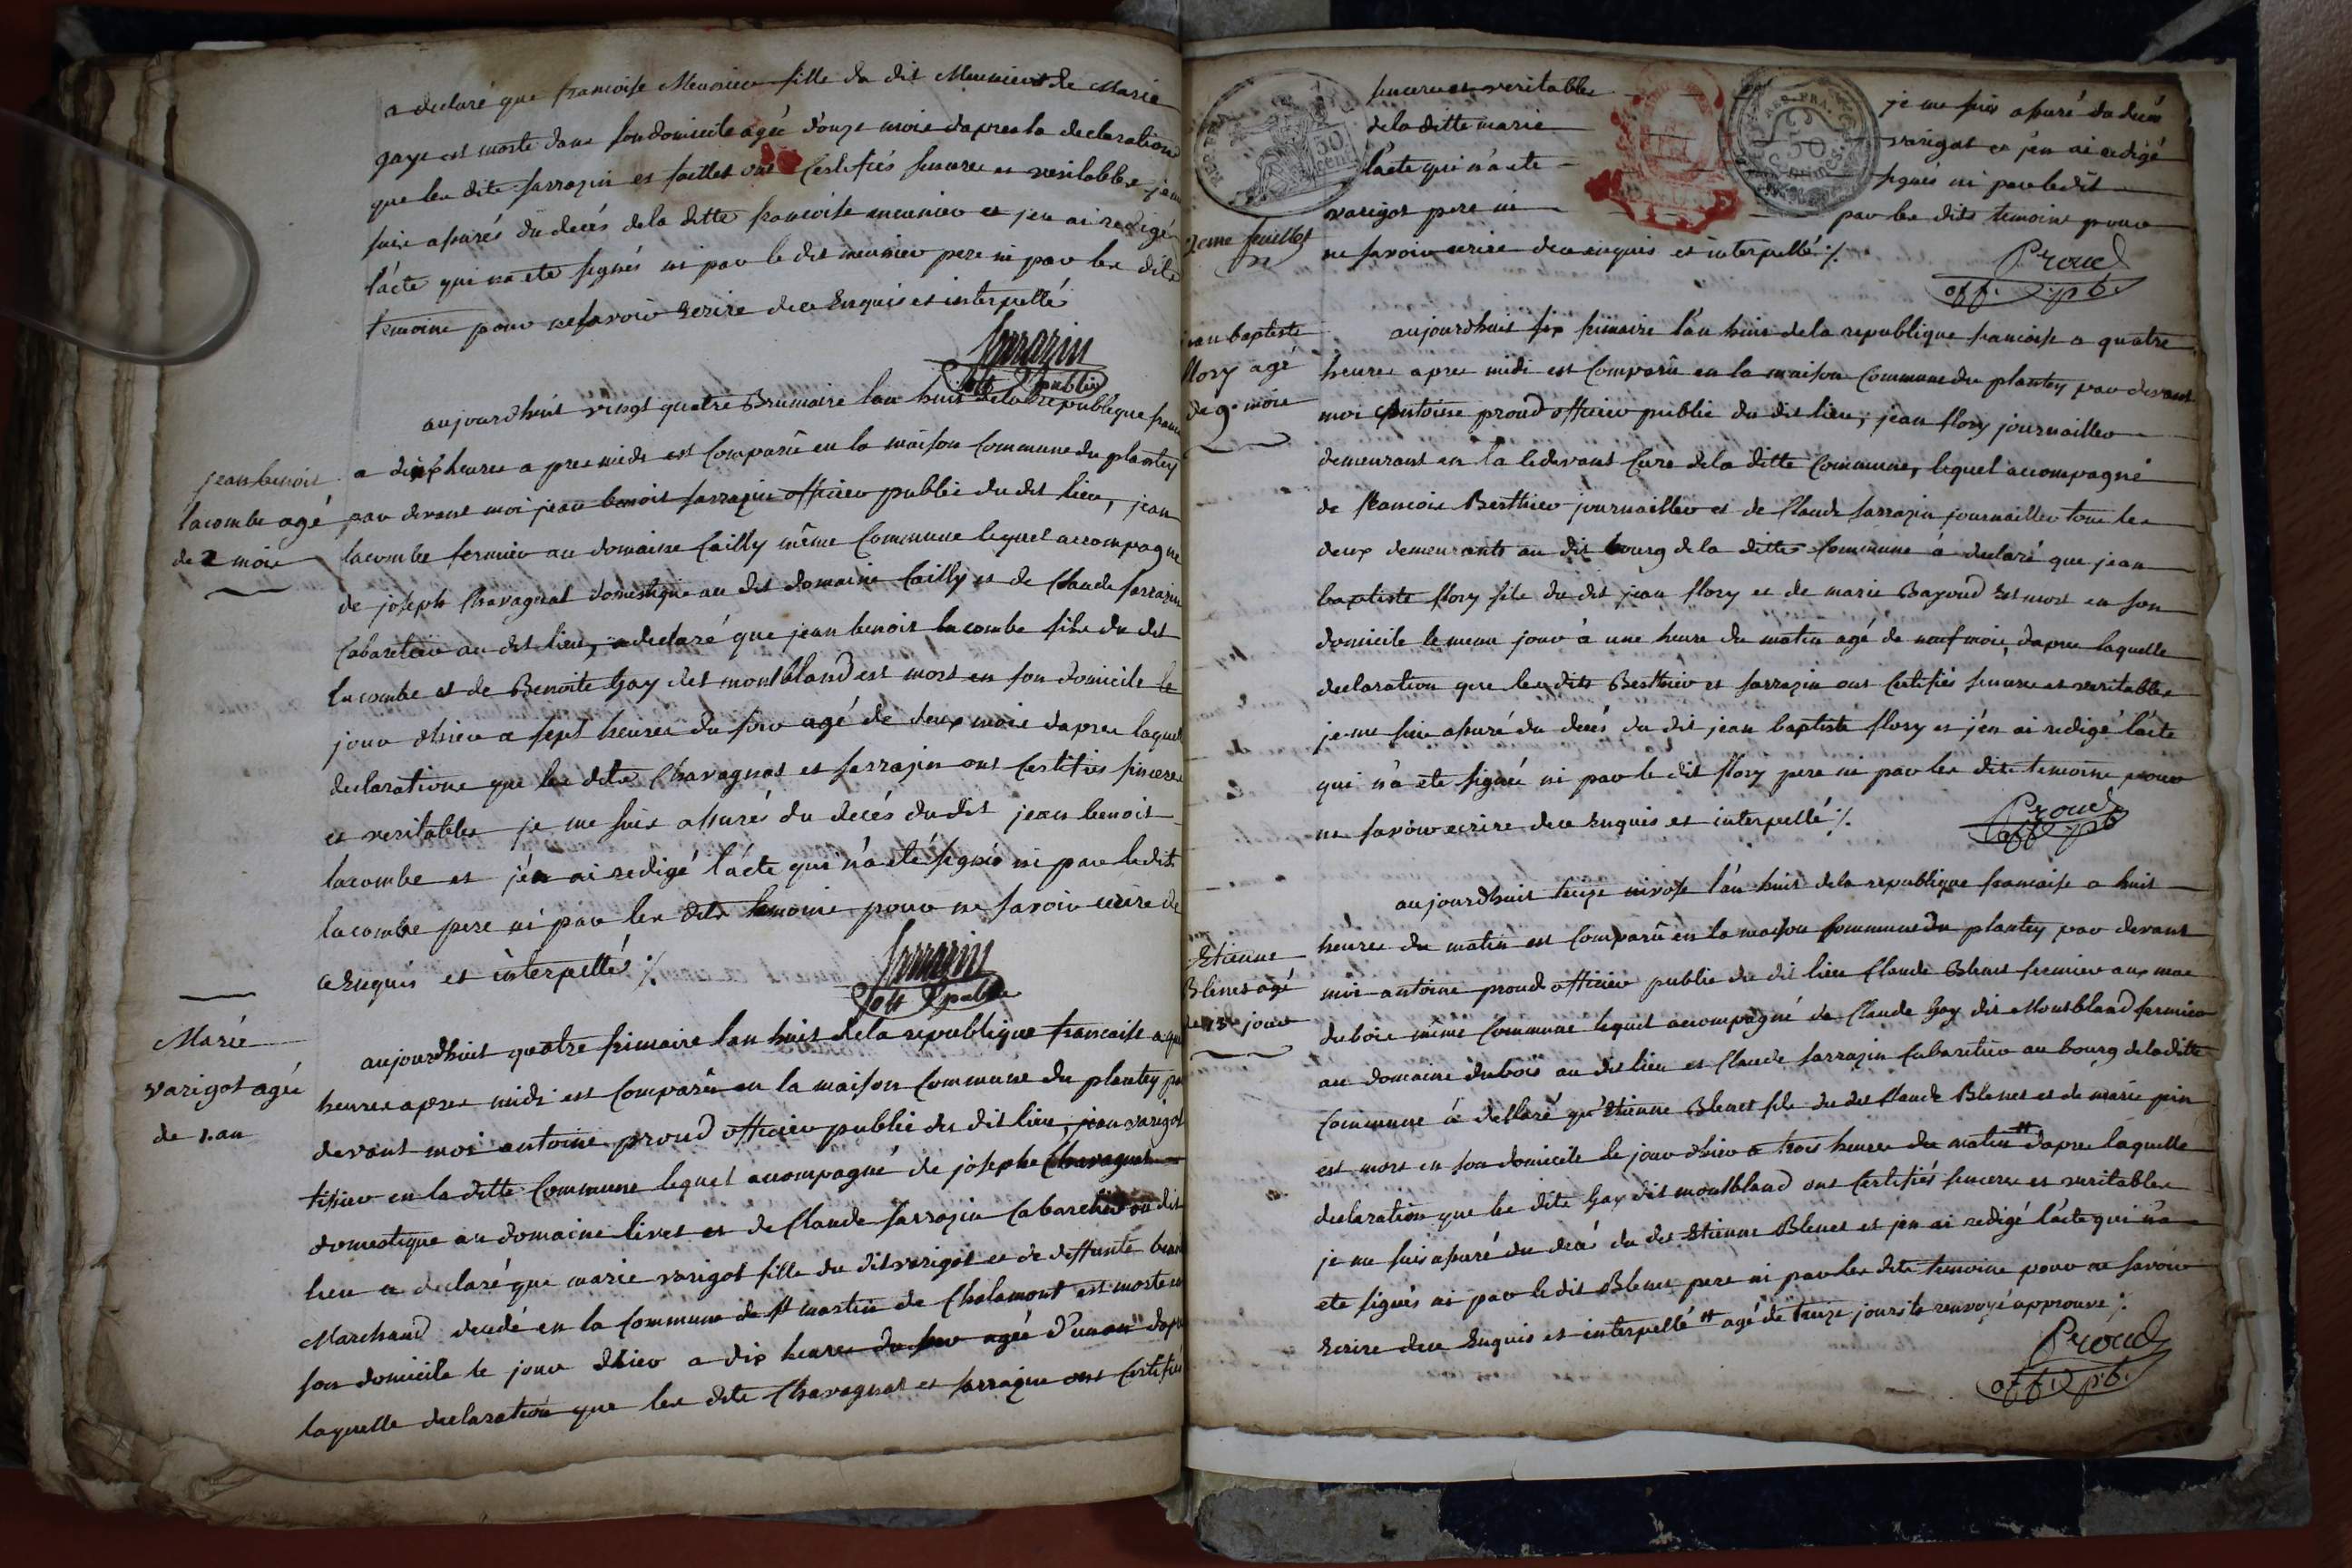 a declaré que francoise Meunier fille du dit Meunier et de Marie
gaye est morte dans son domicile agée d'onze mois dapres la declaration
que les dits sarrazin et ont certifiés sincere et veritable je me
suis assurés du decés de la ditte francoise meunier et jen ai redigé
l'acte qui na ete signés ni par le dit meunier pere ni par les dits
temoins pour ne savoir ecrire de ce enquis et interpellé
Sarrazin
off public
aujourdhuit vingt quatre Brumaire lan huit de la republique franc
jean benoit
lacombe agé
de 2 mois
a dix heures a pres midi est comparû en la maison commune du plantey
par devant moi jean benoit sarrazin officier public du dit lieu, jean
lacombe fermier au domaine Cailly même commune lequel accompagné
de joseph Chavagnat domestique au dit domaine Cailly et de Claude sarrazin
Cabaretier au dit lieu, a declaré que jean benoit lacombe fils du dit
lacombe et de Benoite Gay dit montbland est mort en son domicile le
jour dhier a sept heures du soir agé de deux mois dapres laquel
declarations que les dits Chavagnat et sarrazin ont certifiés sinceres
et veritables je me suis assurés du decés du dit jean benoit
lacombe et j'en ai redigé l'acte qui n'a eté signés ni par le dit
lacombe pere ni par les dits temoins pour ne savoir ecrire de
ce enquis et interpellé ./.
Sarrazin
off public
Marie
varigot agée
de 1. an
aujourdhuit quatre frimaire lan huit de la republique francaise a qu
heures apres midi est comparû en la maison commune du plantey par
devant moi antoine proud officier public du dit lieu, jean varigot
tissier en la ditte commune lequel accompagné de josephe Chavagnat
domestique au domaine livet et de Claude sarrazin Cabaretier au dit
lieu a declaré que marie varigot fille du dit varigot et de deffunte ben
Marchand decedé en la commune de st martin de Chalamont est morte en
son domicile le jour dhier a dix heures du soir agée d'un an dapr
laquelle declaration que les dits Chavagnat et sarrazin ont certifié
sincere et veritable je me suis assuré du decés
de la ditte marie varigot et j'en ai redigé
l'acte qui n'a ete signés ni par le dit
varigot pere ni par les dits temoins pour
ne savoir ecrire de ce enquis et interpellé ./.
REP. FRA.
50
cent.
REP. FRA.
50
centimes.
2eme feuillet
Proud
off. pb.
jean baptiste
flory agé
de 9. mois
aujourdhuit six frimaire l'an huit de la republique francoise a quatre
heures apres midi est comparû en la maison commune du plantey par devant
moi antoine proud officier public du dit lieu, jean flory journaillier
demeurant en la cidevant Cure de la ditte commune, lequel accompagné
de francois Berthier journaillier et de Claude sarrazin journaillier tous les
deux demeurants au dit bourg de la ditte commune à declaré que jean
baptiste flory fils du dit jean flory et de marie Bayoud est mort en son
domicile le meme jour à une heure du matin agé de neuf mois, dapres laquelle
declaration que les dits Berthier et sarrazin ont certifiés sincere et veritables
je me suis assuré du decés du dit jean baptiste flory et j'en ai redigé l'acte
qui n'a ete signés ni par le dit flory pere ni par les dits temoins pour
ne savoir ecrire de ce enquis et interpellé ./.
Proud
off. pb
Etienne
Blenet agé
de 13 jours
aujourdhuit treize nivose l'an huit de la republique francaise a huit
heures du matin est comparû en la maison commune du plantey par devant
moi antoine proud officier public du dit lieu Claude Blenet fermier aux mas
dubois même commune lequel accompagné de Claude Gay dit Montbland fermier
au domaine dubois au dit lieu et Claude sarrazin Cabaretier au bourg de la ditte
commune à declaré qu'Etienne Blenet fils du dit Claude Blenet et de marie pin
est mort en son domicile le jour dhier a trois heures du matin # dapres laquelle
declaration que les dits Gay dit montbland ont certifiés sincere et veritables
je me suis assuré du decé du dit Etienne Blenet et jen ai redigé l'acte qui n'a
ete signés ni par le dit Blenet pere ni par les dits temoins pour ne savoir
Ecrire de ce Enquis et interpellé # agé de treize jours le renvoyé approuvé ./.
Proud
off. pb.